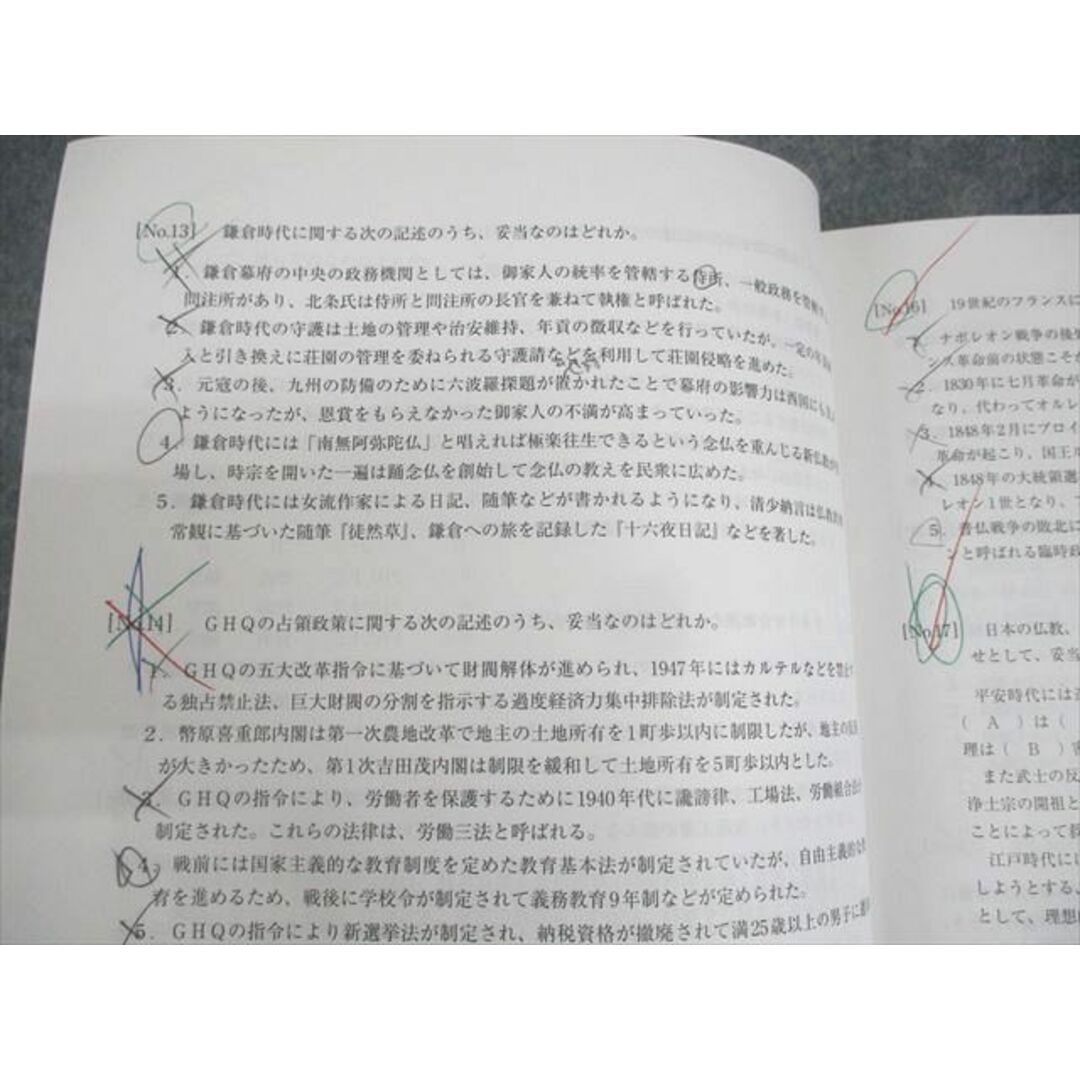 [No.13] 鎌倉時代に関する次の記述のうち、妥当なのはどれか。
1. 鎌倉幕府の中央の政務機関としては、御家人の統率を管轄する侍所、一般政務を管轄
問注所があり、北条氏は侍所と問注所の長官を兼ねて執権と呼ばれた。
2. 鎌倉時代の守護は土地の管理や治安維持、年貢の徴収などを行っていたが、一定の年貢
入と引き換えに荘園の管理を委ねられる守護請などを利用して荘園侵略を進めた。
3. 元寇の後、九州の防備のために六波羅探題が置かれたことで幕府の影響力は西国にも
ようになったが、恩賞をもらえなかった御家人の不満が高まっていった。
4. 鎌倉時代には「南無阿弥陀仏」と唱えれば極楽往生できるという念仏を重んじる新仏教が
場し、時宗を開いた一遍は踊念仏を創始して念仏の教えを民衆に広めた。
5. 鎌倉時代には女流作家による日記、随筆などが書かれるようになり、清少納言は仏教的
常観に基づいた随筆『徒然草』、鎌倉への旅を記録した『十六夜日記』などを著した。
[No.14] GHQの占領政策に関する次の記述のうち、妥当なのはどれか。
1. GHQの五大改革指令に基づいて財閥解体が進められ、1947年にはカルテルなどを禁止
る独占禁止法、巨大財閥の分割を指示する過度経済力集中排除法が制定された。
2. 幣原喜重郎内閣は第一次農地改革で地主の土地所有を1町歩以内に制限したが、地主の
が大きかったため、第1次吉田茂内閣は制限を緩和して土地所有を5町歩以内とした。
3. GHQの指令により、労働者を保護するために1940年代に讒謗律、工場法、労働組合法
制定された。これらの法律は、労働三法と呼ばれる。
4. 戦前には国家主義的な教育制度を定めた教育基本法が制定されていたが、自由主義的な
育を進めるため、戦後に学校令が制定されて義務教育9年制などが定められた。
5. GHQの指令により新選挙法が制定され、納税資格が撤廃されて満25歳以上の男子に
[No.16] 19世紀のフランスに
ナポレオン戦争の後
ンス革命前の状態こそが
2. 1830年に七月革命が
なり、代わってオルレ
3. 1848年2月にプロイ
革命が起こり、国王
4. 1848年の大統領選
レオン1世となり、
5. 普仏戦争の敗北に
ンと呼ばれる臨時政
[No.17] 日本の仏教、
せとして、妥当
平安時代には
( A )は(
理は( B )密
また武士の反
浄土宗の開祖と
ことによって
江戸時代に
しようとする、
として、理想